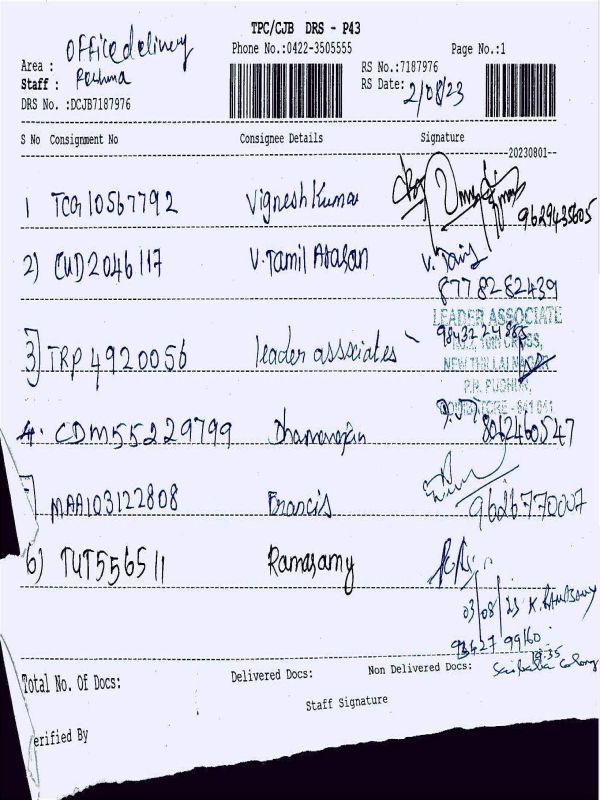 TPC/CJB DRS - P43
Area : Office delivery
Phone No.:0422-3505555
Page No.:1
Staff : Rechma
RS No.:7187976
RS Date: 2/08/23
DRS No. :DCJB7187976
S No Consignment No Consignee Details Signature
20230801
1 TCG10567792 Vignesh Kumar
9629435605
2) CUD2046117 V. Tamil Arasan V. Tamil
8778282439
LEADER ASSOCIATE
3) TRP4920056 leader associates
NEW THILLAI NAGAR
P.N. PUDHUR,
COIMBATORE - 641 041
4. CDM55229799 8062460547
MAA103122808 Francis
9626770007
6) TUT556511 Ramasamy
03/08/23 K. RAMASAMY
19:35
Saibaba Colony
Total No. Of Docs: Delivered Docs: Non Delivered Docs:
Staff Signature
erified By